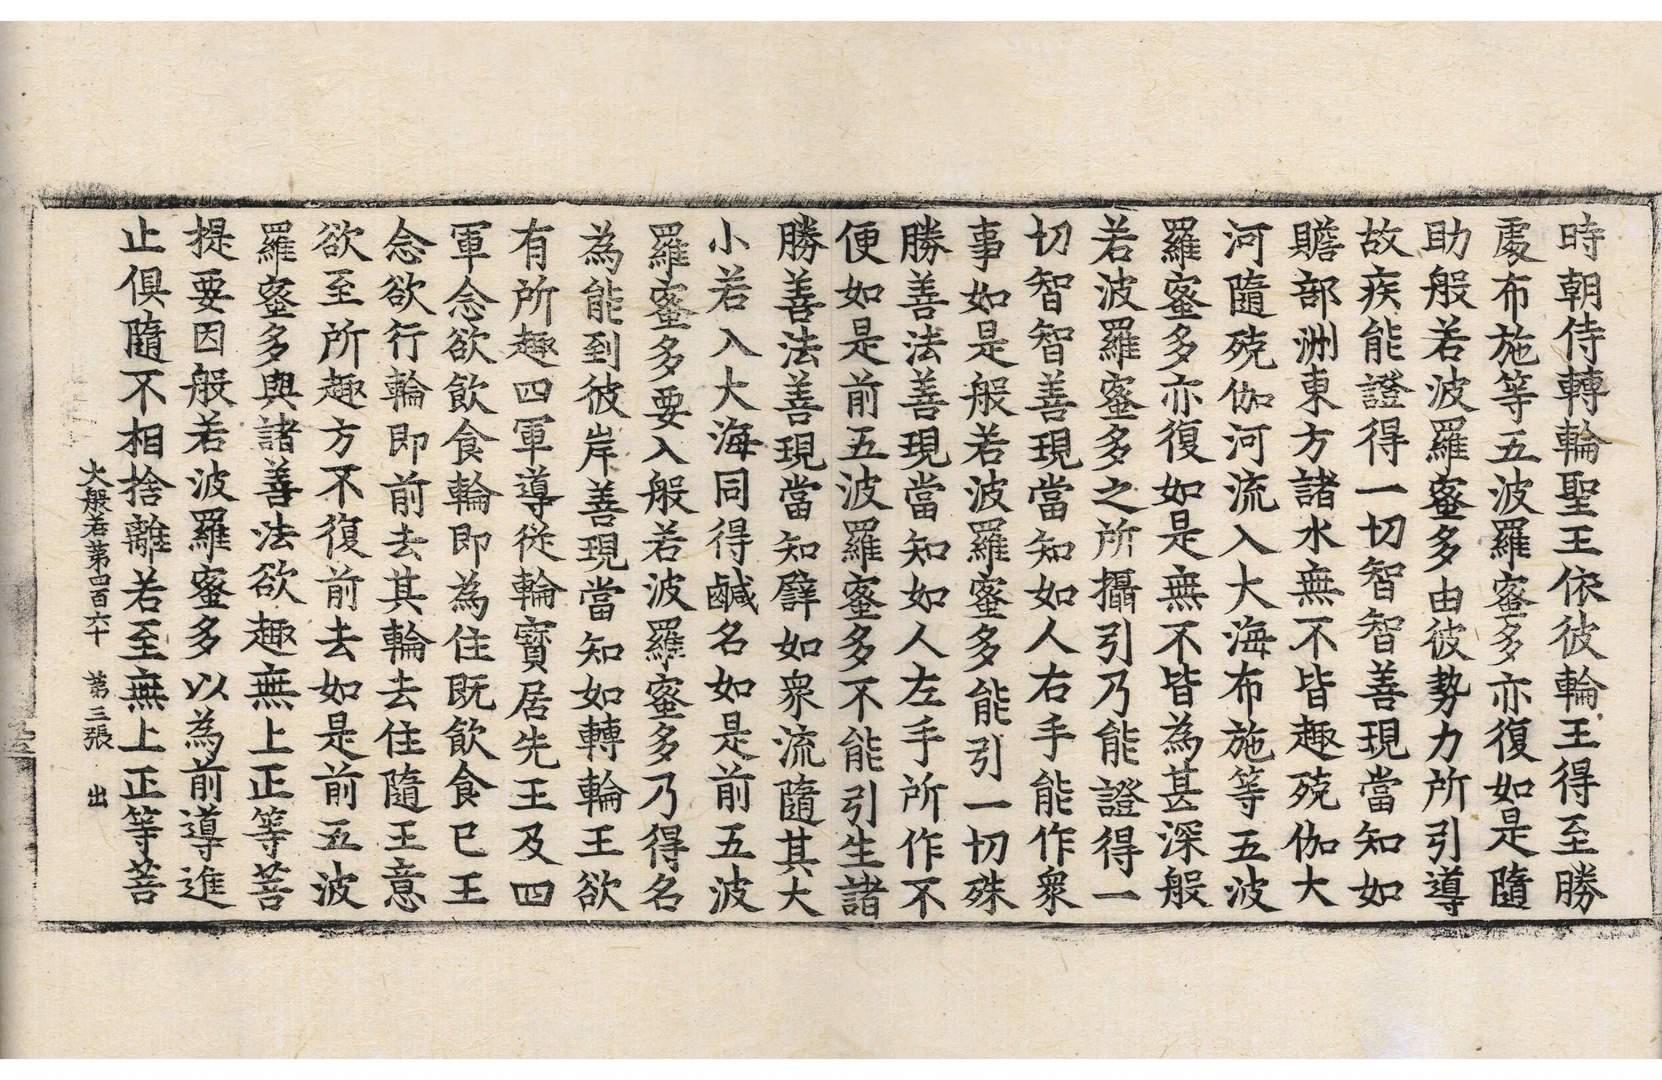 時朝侍轉輪聖王依彼輪王得至勝
處布施等五波羅蜜多亦復如是隨
助般若波羅蜜多由彼勢力所引導
故疾能證得一切智智善現當知如
贍部洲東方諸水無不皆趣殑伽大
河隨殑伽河流入大海布施等五波
羅蜜多亦復如是無不皆為甚深般
若波羅蜜多之所攝引乃能證得一
切智智善現當知如人右手能作衆
事如是般若波羅蜜多能引一切殊
勝善法善現當知如人左手所作不
便如是前五波羅蜜多不能引生諸
勝善法善現當知譬如衆流隨其大
小若入大海同得鹹名如是前五波
羅蜜多要入般若波羅蜜多乃得名
為能到彼岸善現當知如轉輪王欲
有所趣四軍導從輪寶居先王及四
軍念欲飲食輪即為住既飲食已王
念欲行輪即前去其輪去住隨王意
欲至所趣方不復前去如是前五波
羅蜜多與諸善法欲趣無上正等菩
提要因般若波羅蜜多以為前導進
止俱隨不相捨離若至無上正等菩
大般若第四百六十 第三張 出